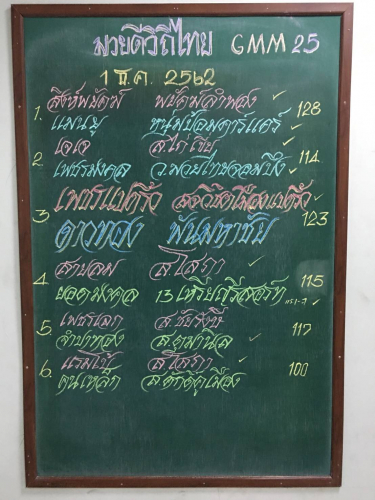 มวยดีวิถีไทย GMM 25
1 ธ.ค. 2562
1. สิงห์พยัคฆ์ พยัคฆ์ลำพอง 128
แมนยู หนุ่มป้อมคาร์แคร์
2. เจเจ ส.ไก่เขี่ย 114
เพชรมงคล ว.มวยไทยจอมบึง
3. เพชรแปดริ้ว 123
ดาวทอง พันมหาชัย
4. สายลม ส.โสภา 115
ยอดมงคล 13 เหรียญรีสอร์ท
5. เพชรเอก ส.ชัย 117
ลำปาทอง
6. ส.โสภา 100
ขุนเหล็ก ส.ศักดิ์ภูเมือง